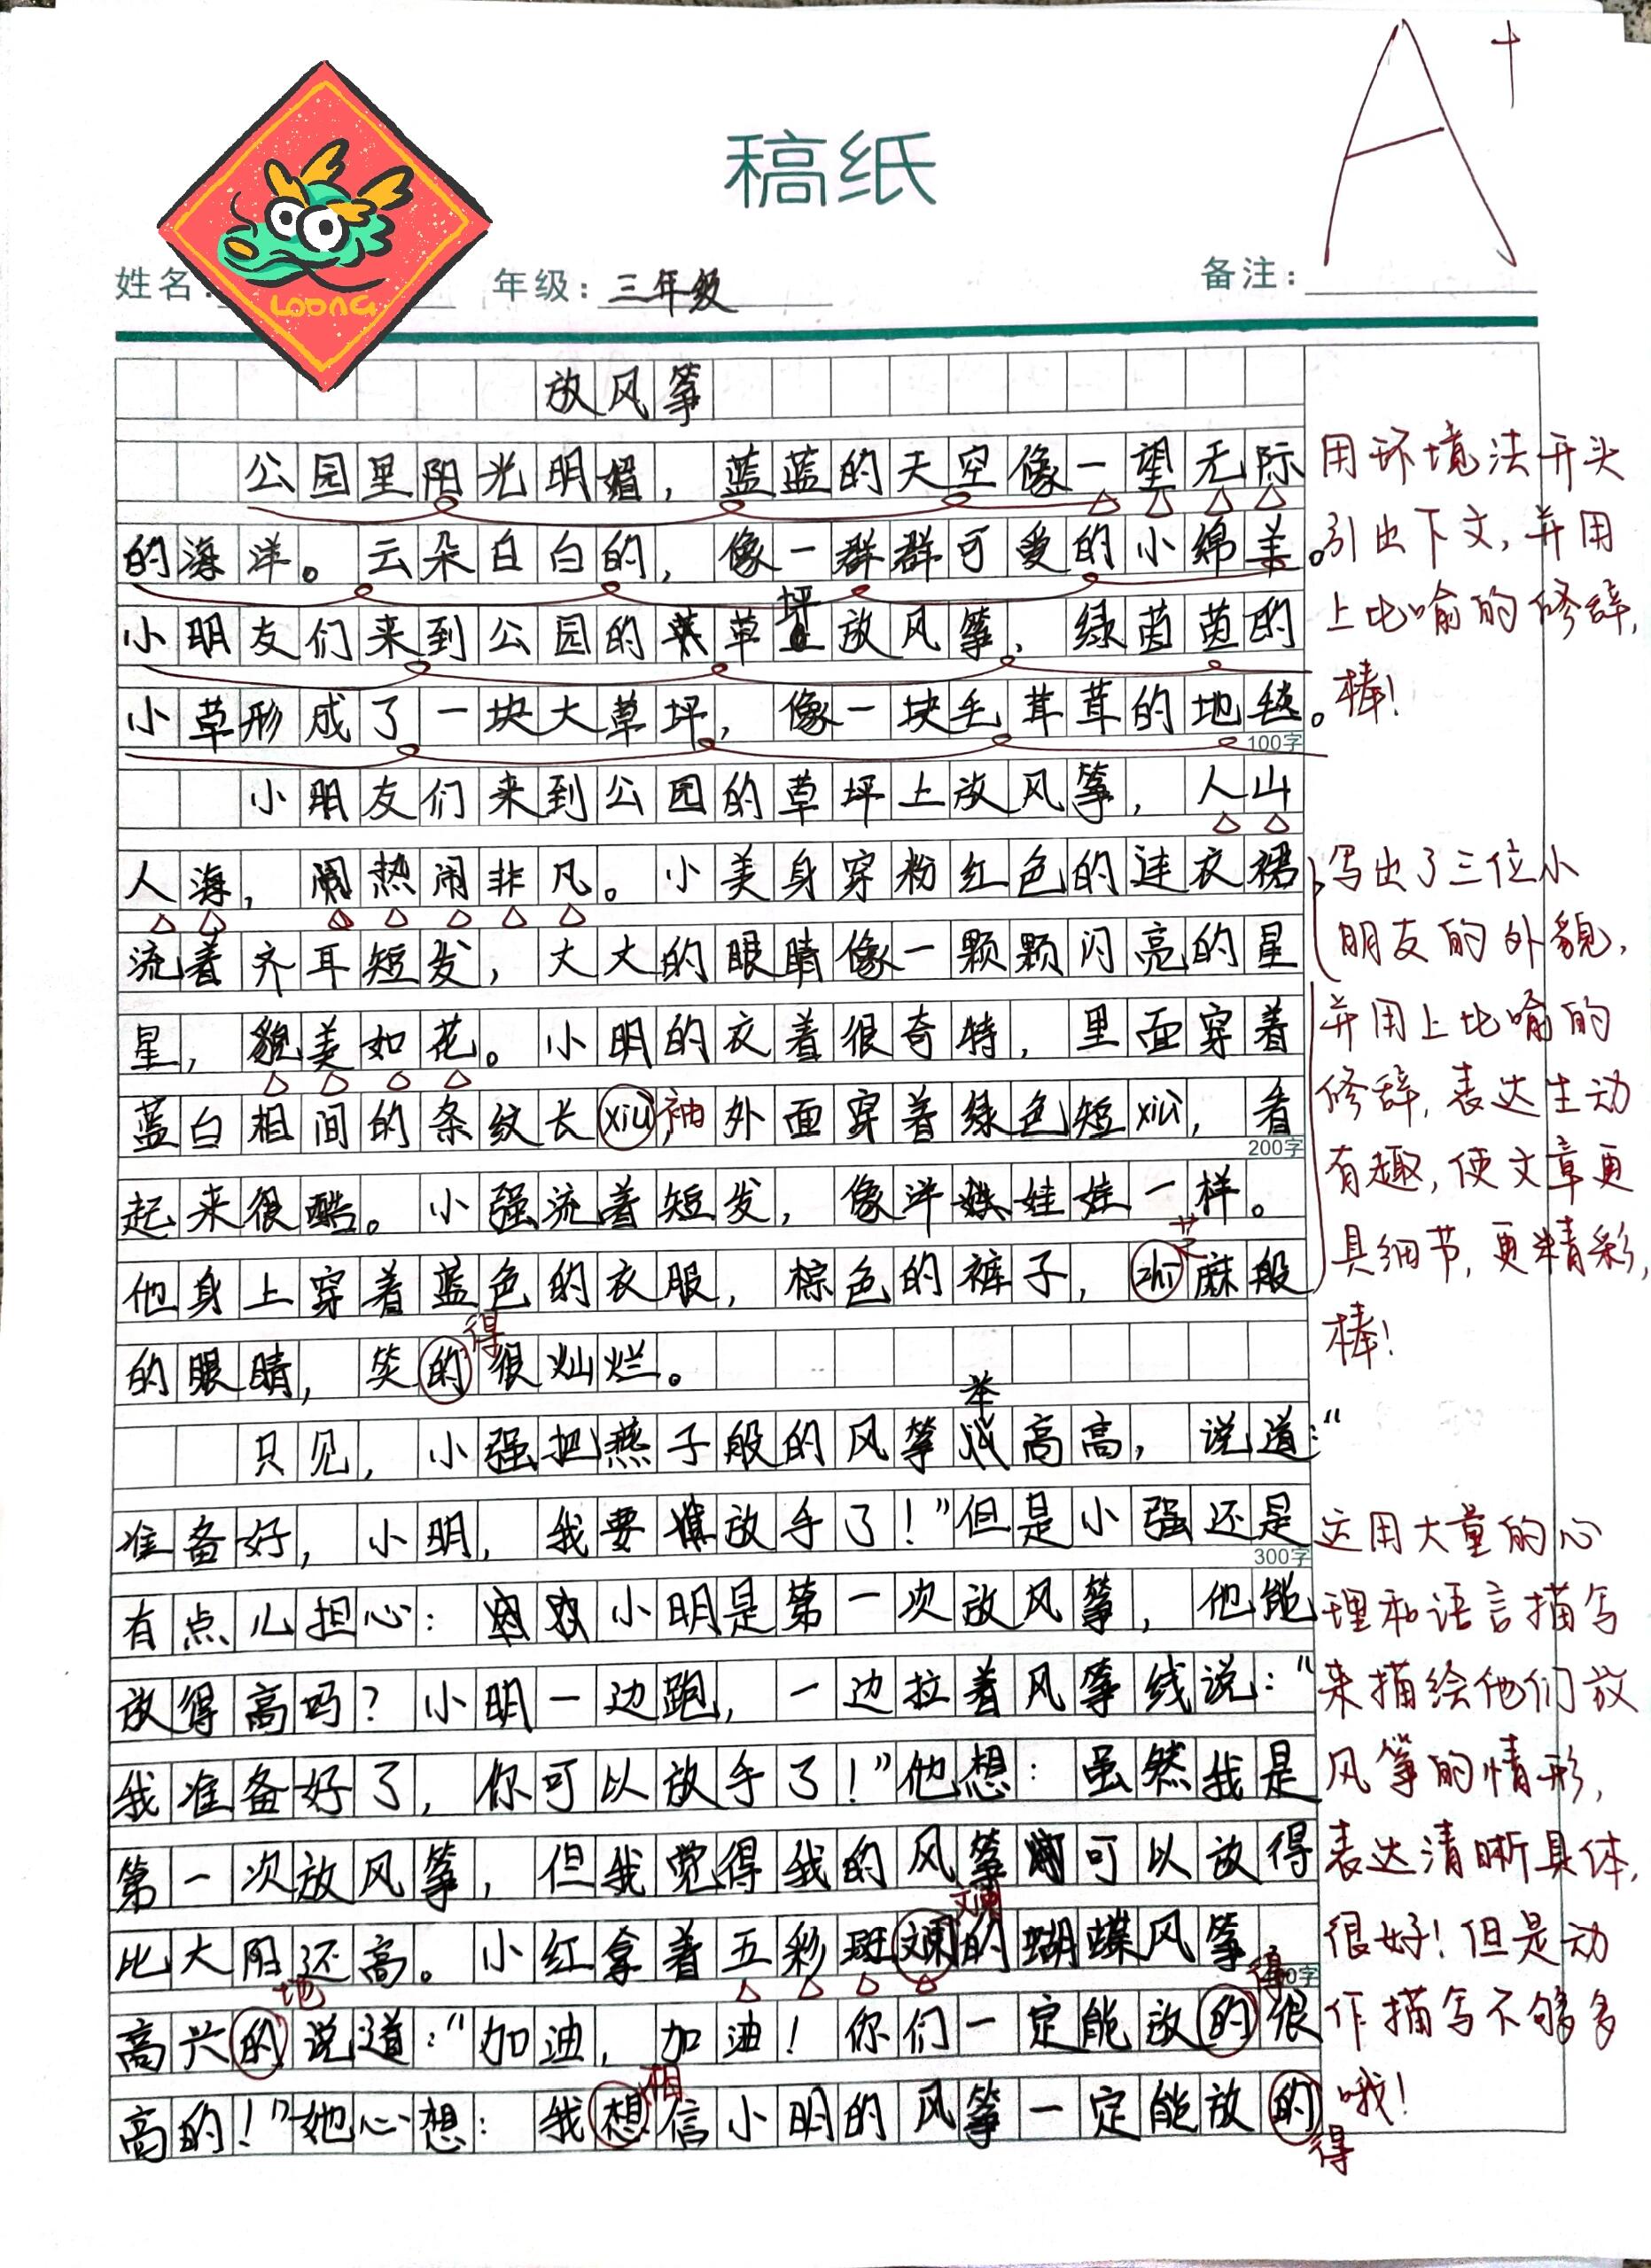 A+
稿纸
LOONG
姓名: 年级: 三年级 备注:
放风筝
公园里阳光明媚，蓝蓝的天空像一望无际
的海洋。云朵白白的，像一群群可爱的小绵羊。
小明友们来到公园的草坪放风筝，绿茵茵的
小草形成了一块大草坪，像一块毛茸茸的地毯。
100字
小朋友们来到公园的草坪上放风筝，人山
人海，热闹非凡。小美身穿粉红色的连衣裙
流着齐耳短发，大大的眼睛像一颗颗闪亮的星
星，貌美如花。小明的衣着很奇特，里面穿着
蓝白相间的条纹长xiù袖外面穿着绿色短xiù，看
200字
起来很酷。小强流着短发，像洋娃娃一样。
芝
他身上穿着蓝色的衣服，棕色的裤子，zhī麻般
得
的眼睛，笑的很灿烂。
举
只见，小强把燕子般的风筝高高，说道：“
准备好，小明，我要放手了！”但是小强还是
300字
有点儿担心：小明是第一次放风筝，他能
放得高吗？小明一边跑，一边拉着风筝线说：“
我准备好了，你可以放手了！”他想：虽然我是
第一次放风筝，但我觉得我的风筝可以放得
斓
比大阳还高。小红拿着五彩斑的蝴蝶风筝，
地 得
高兴的说道：“加油，加油！你们一定能放的很
相
高的！”她心想：我想信小明的风筝一定能放的
得
用环境法开头
引出下文，并用
上比喻的修辞，
棒！
写出了三位小
朋友的外貌，
并用上比喻的
修辞，表达生动
有趣，使文章更
具细节，更精彩，
棒！
运用大量的心
理和语言描写
来描绘他们放
风筝的情形，
表达清晰具体，
很好！但是动
作描写不够多
哦！